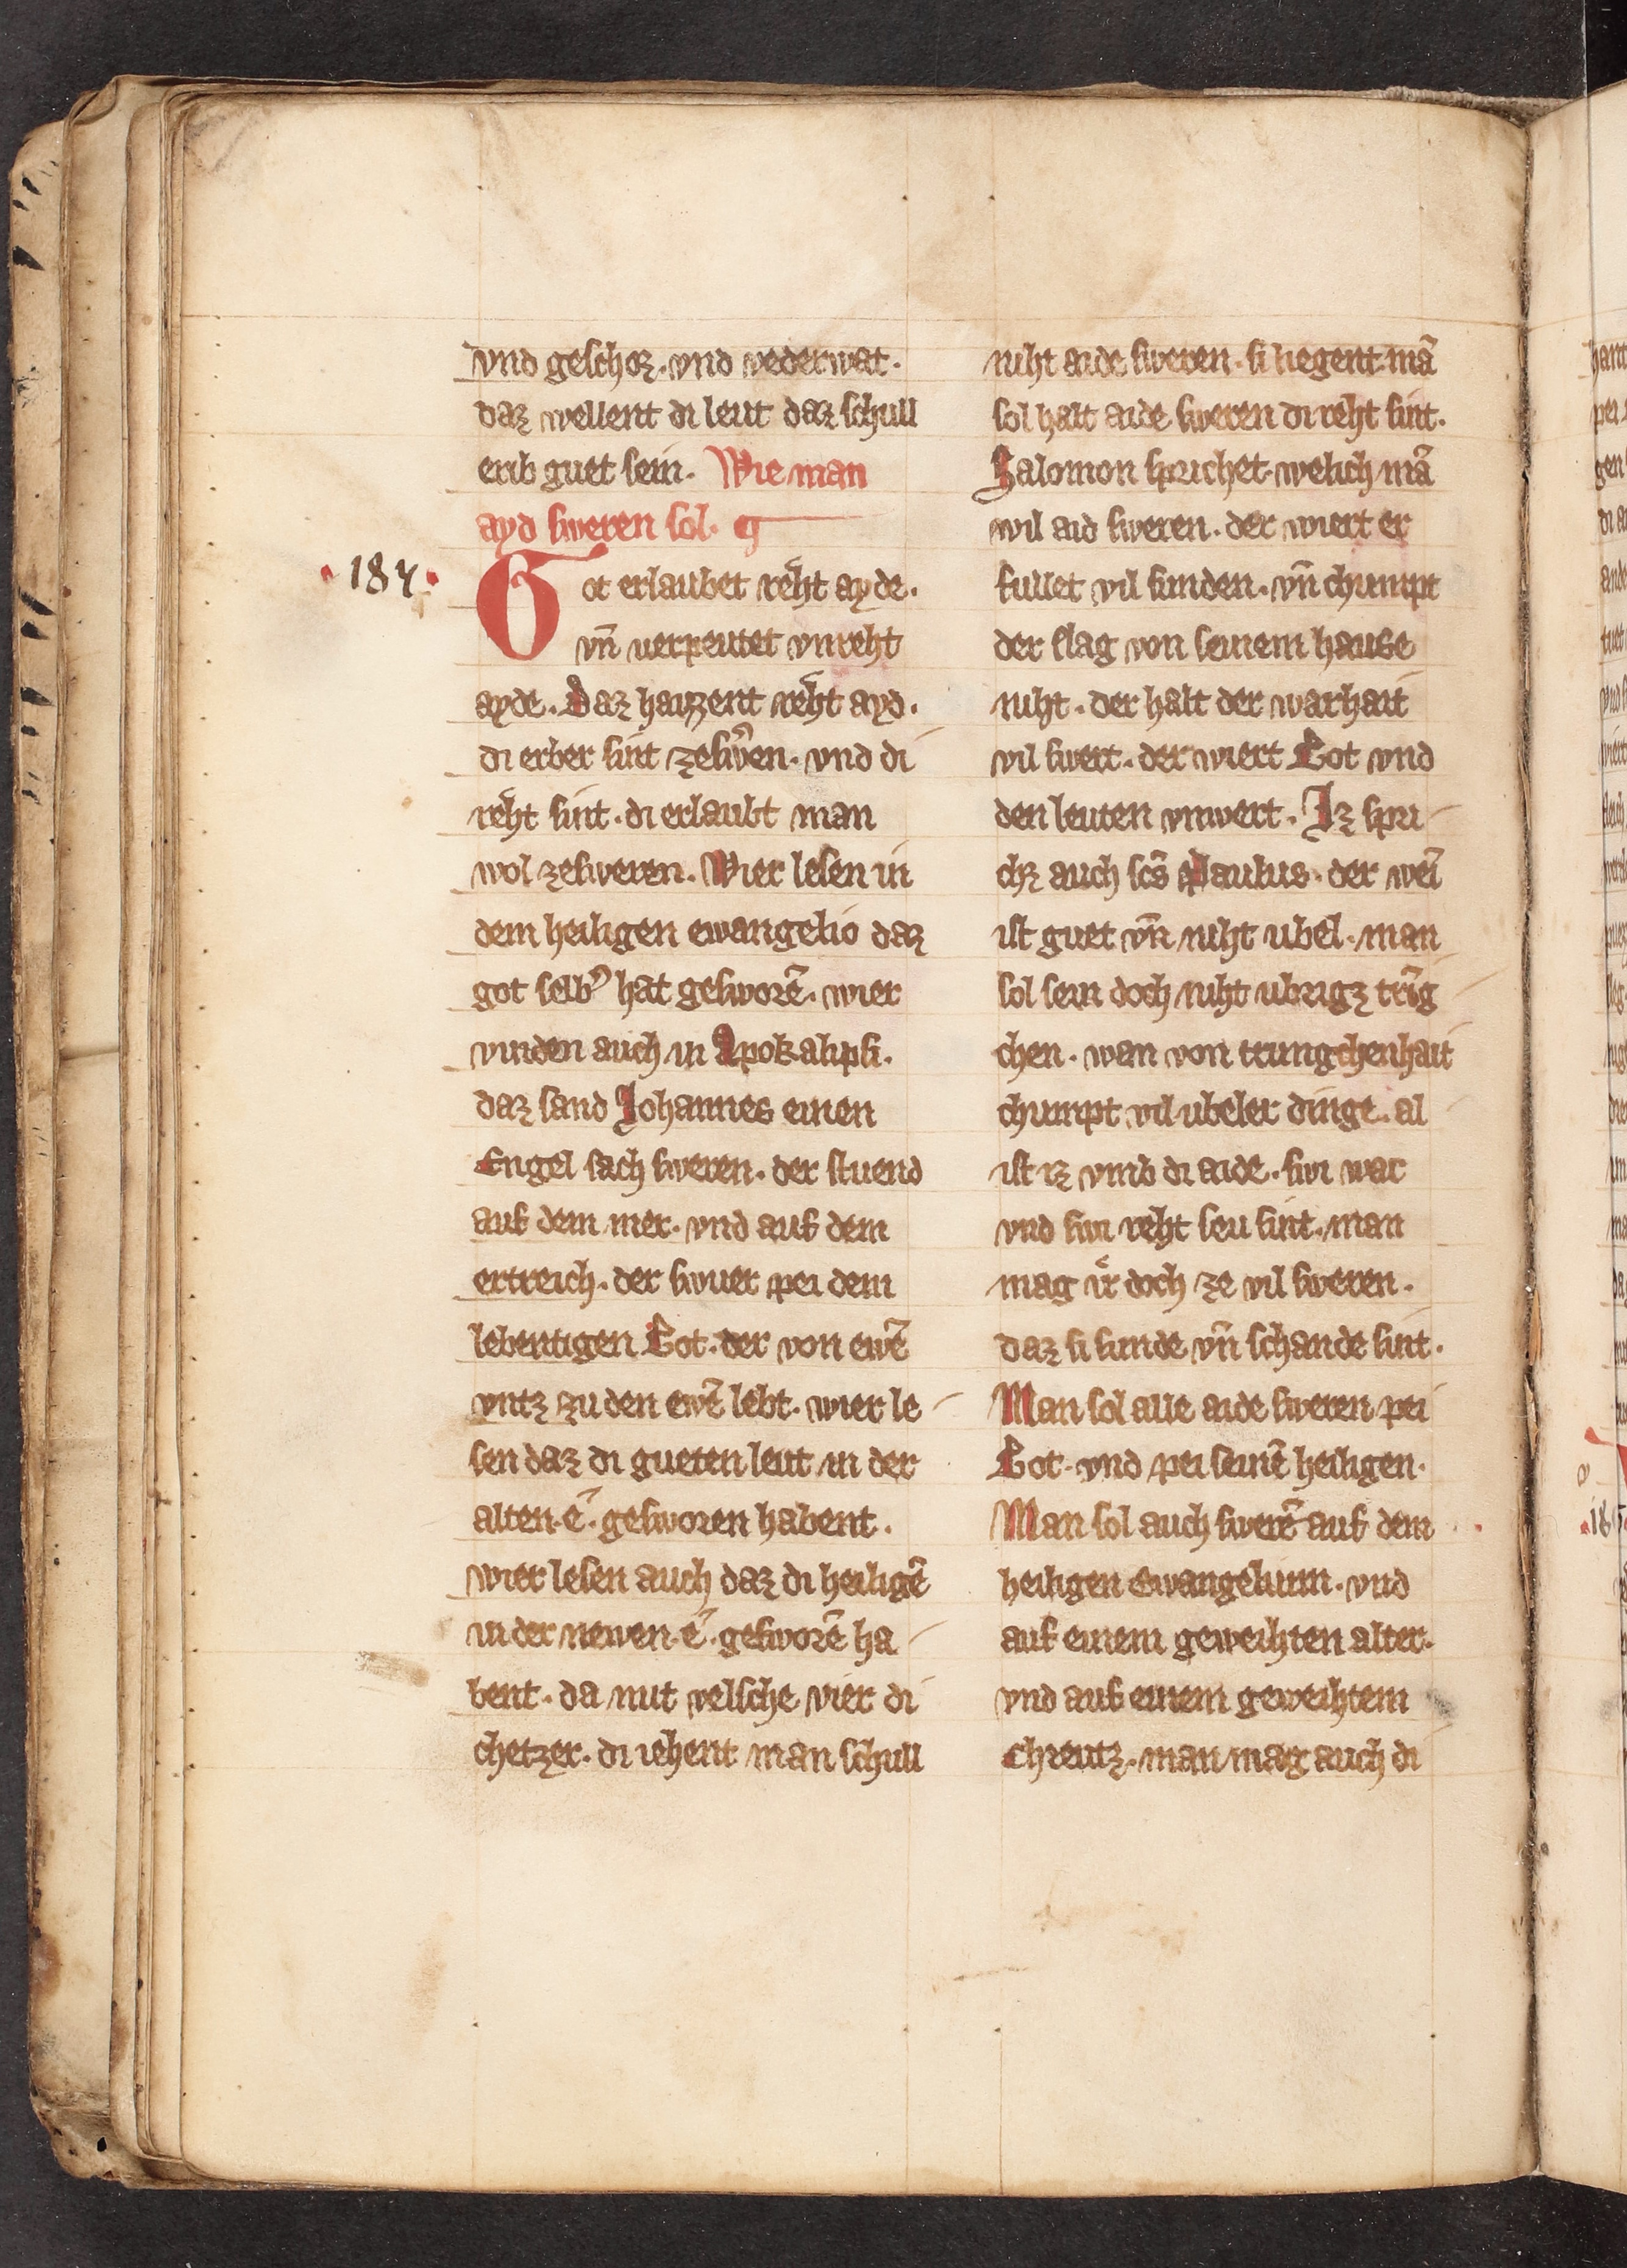 vnd geschoz. vnd vederwat.
daz wellent di leut daz schull
erib guet sein. Wie man
ayd sweren sol.
.187.
Got erlaubet reht ayde.
vn̄ verpeutet vnreht
ayde. Daz haizzent reht ayd.
di erber sint zeswͤren. vnd di
reht sint. di erlaubt man
wol zesweren. Wier lesen in
dem heiligen ewangelio daz
got selbͤ hat gesworē. wier
vinden auch in Apokalipsi.
daz sand Johannes einen
Engel sach sweren. der stuend
auf dem mer. vnd auf dem
ertreich. der swuer pei dem
lebentigen Got. der von ewē
vntz zu den ewē lebt. wier le
sen daz di gueten leut in der
alten .e. gesworen habent.
wier lesen auch daz di heiligē
in der newen .e. gesworē ha
bent. da mit velsche wier di
chetzer. di iehent man schull
niht aide sweren. si liegent. mā
sol halt aide sweren di reht sint.
Salomon sprichet. welich mā
vil aid sweren. der wiert er
fullet vil sunden. vn̄ chumpt
der slag von seinem hause
niht. der halt der warhait
vil swert. der wiert Got vnd
den leuten vnwert. Iz spri
chz auch scs̄ Paulus. der wei
ist guet vn̄ niht ubel. man
sol sein doch niht ubrigz trīg
chen. wan von trungchenhait
chumpt vil ubeler dinge. al
ist iz vmb di aide. swi war
vnd swi reht seu sint. man
mag ir doch ze vil sweren.
daz si sunde vn̄ schande sint.
Man sol alle aide sweren pei
Got. vnd pei seinē heiligen.
Man sol auch swerē auf dem
heiligen Ewangelium. vnd
auf einem geweihten alter.
vnd auf einem geweihtem
Chreutz. man mag auch di